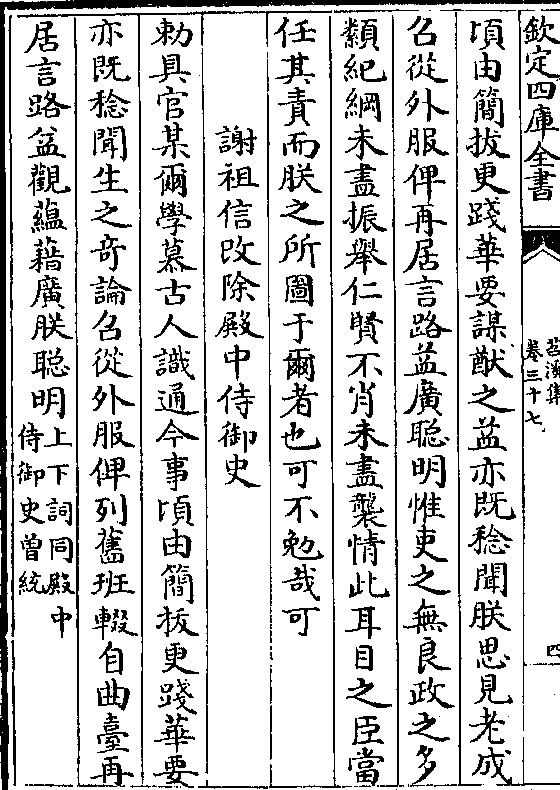 欽定四庫全書
苕溪集
卷三十七
四
頃由簡拔更踐華要謀猷之益亦既稔聞朕思見老成
召從外服俾再居言路益廣聰明惟吏之無良政之多
纇紀綱未盡振舉仁賢不肖未盡襲情此耳目之臣當
任其責而朕之所圖于爾者也可不勉哉可
謝祖信改除殿中侍御史
勅具官某爾學慕古人識通今事頃由簡拔更踐華要
亦既稔聞生之奇論召從外服俾列舊班輟自曲臺再
居言路益觀蘊藉廣朕聰明上下詞同殿中
侍御史曾統